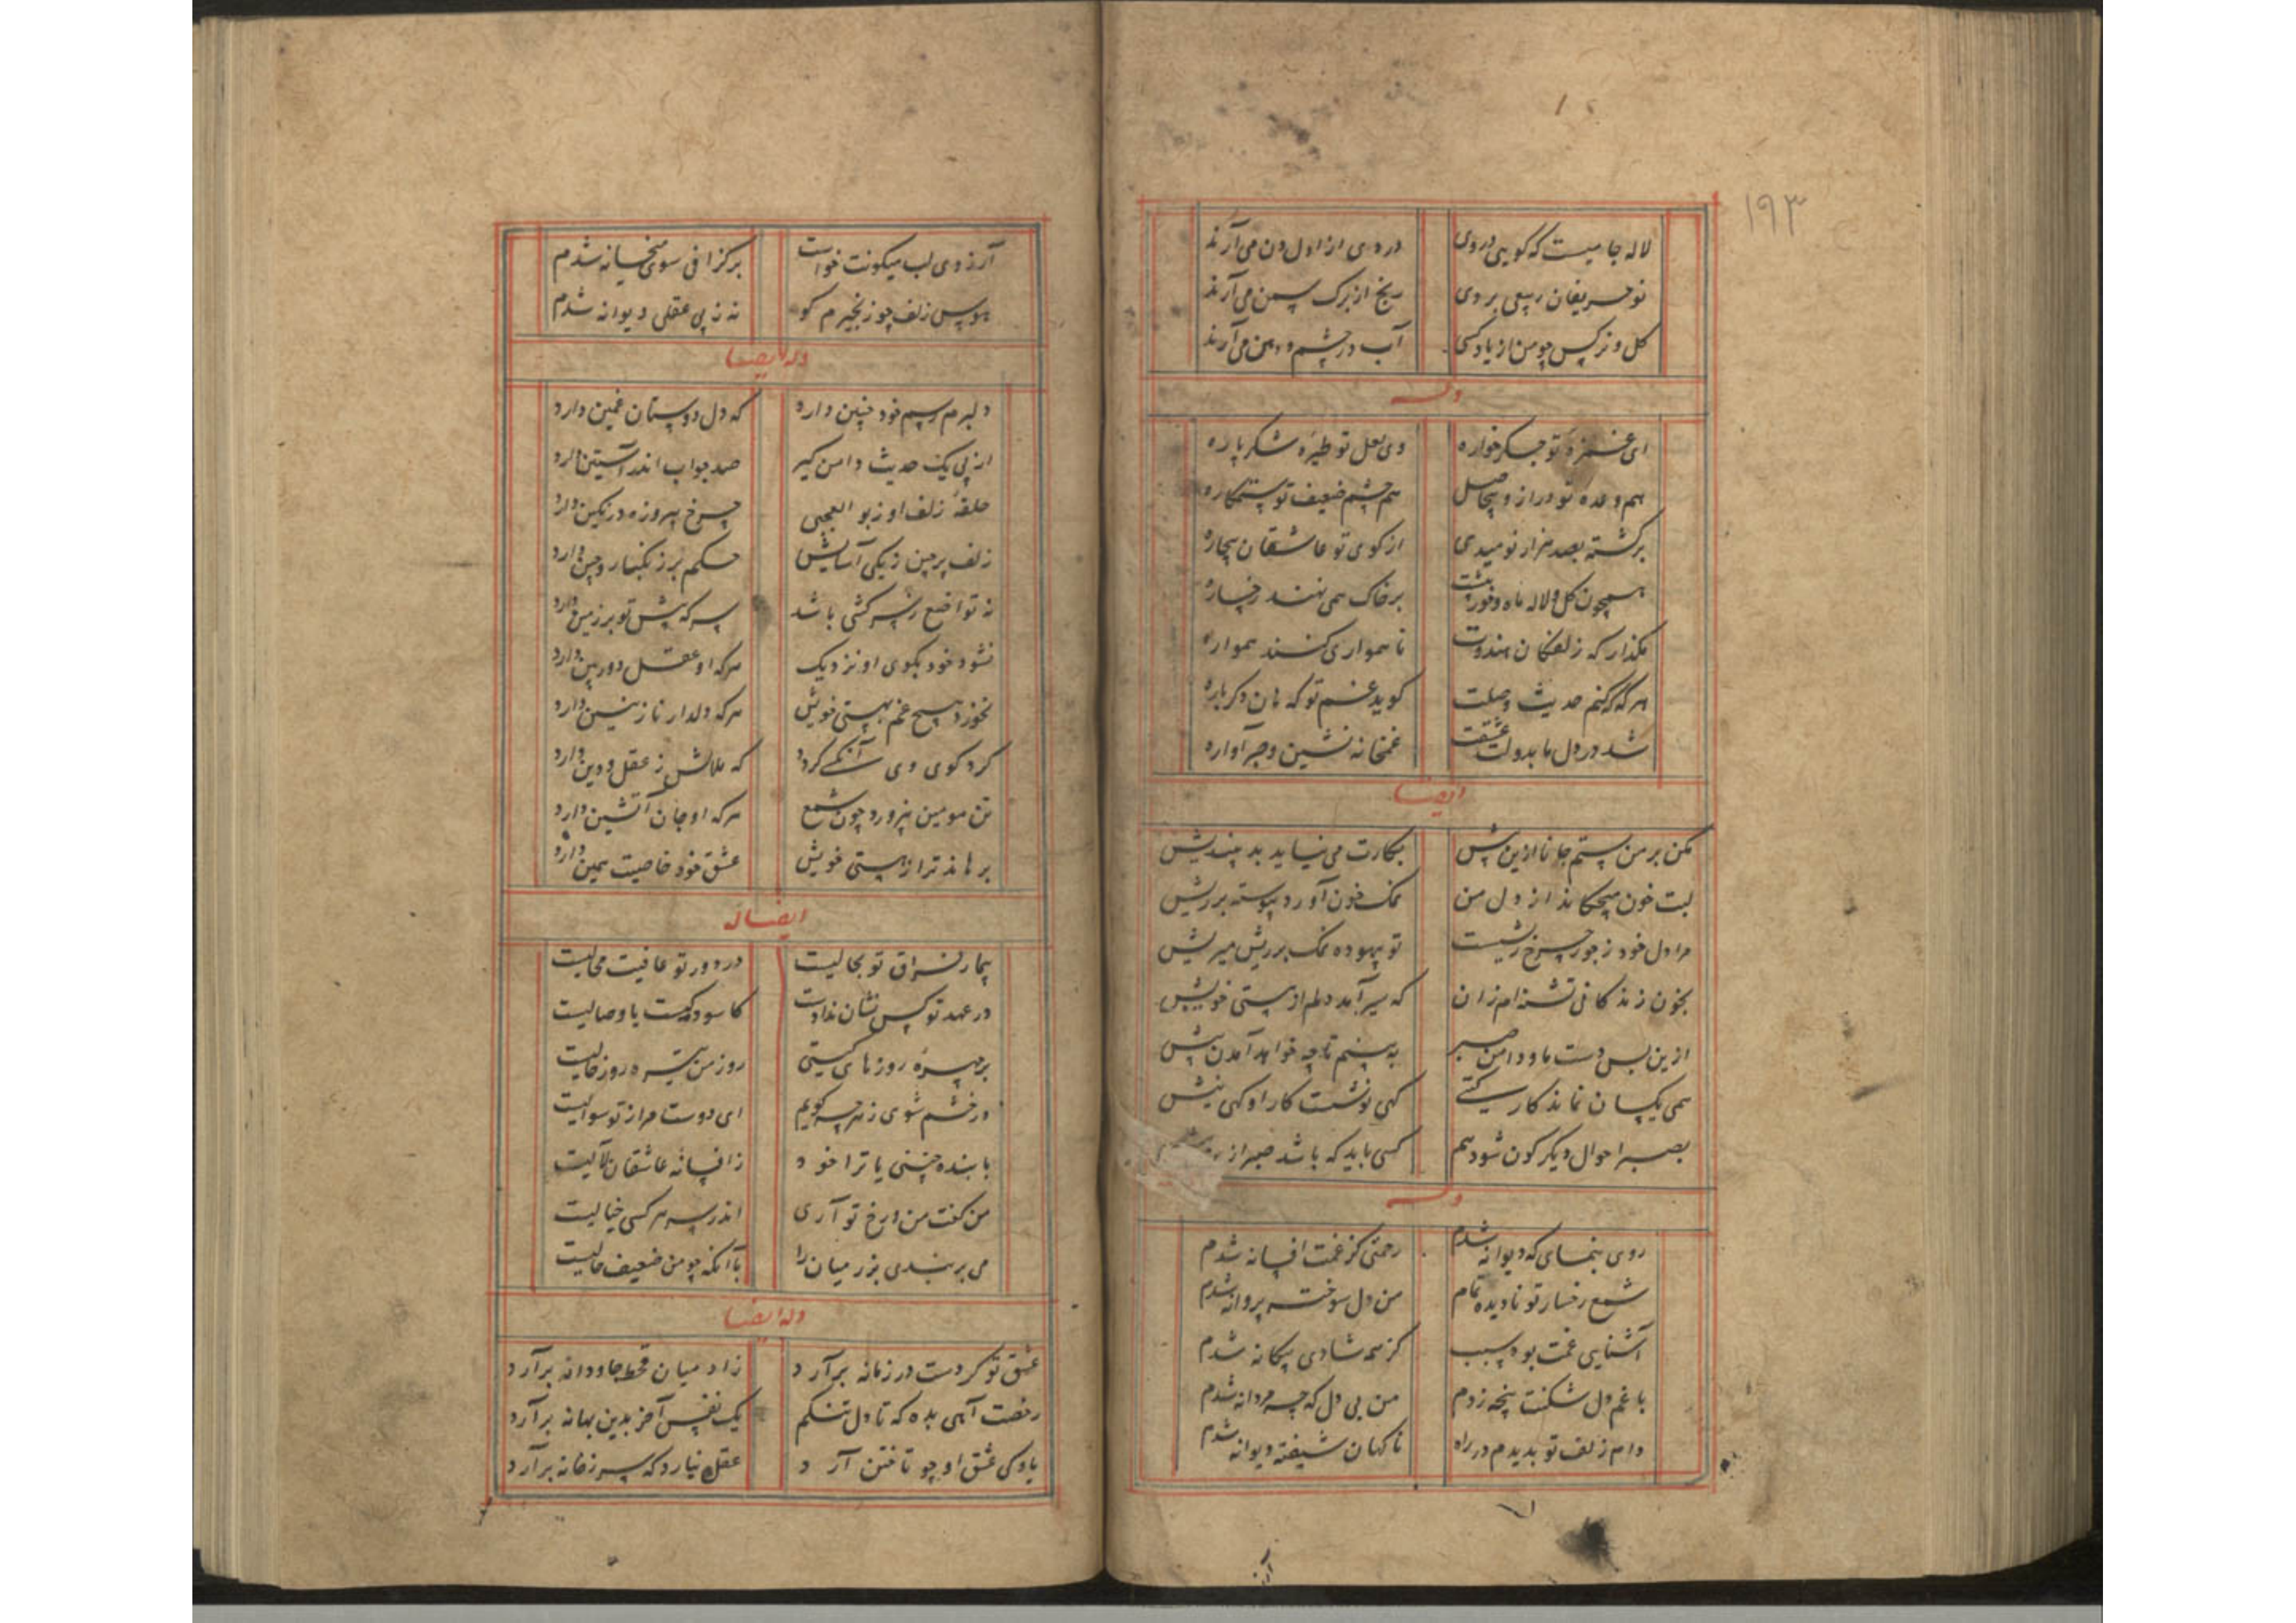 ۱۹۳
لاله جامیست که کویی در وی
دردی از اول دن می آرند
نو حریفان ربیعی بر وی
رنج از برک سمن می آرند
کل و نرکس چو من از یاد کسی
آب در چشم و دهن می آرند
وله
ای غمزهٔ تو جکر خواره
وی لعل تو طیرهٔ شکر پاره
هم وعده تو دراز و بیحاصل
هم چشم ضعیف تو ستمکاره
برکشته بصد هزار نومیدی
از کوی تو عاشقان بیچاره
همچون کل و لاله ماه و خور پیشت
بر خاک همی نهند رخساره
مکذار که زلفکان هندوت
ناهمواری کنند همواره
هر که که کنم حدیث وصلت
کوید غم تو که هان دکر باره
شد در دل ما بدولت عشقت
غمخانه نشین و صبر آواره
ایضا
مکن بر من ستم جانا ازین بیش
بکارت می نیاید بد میندیش
لبت خون میچکاند از دل من
نمک خون آورد پیوسته بر ریش
مرا دل خود ز جور چرخ ریشست
تو بیهوده نمک بر ریش میریش
بخون زندکانی تشنه ام زان
که سیر آمد دلم از هستی خویش
ازین بس دست ما و دامن صبر
به بینم تا چه خواهد آمدن پیش
همی یکسان نماند کار کیتی
کهی نوشست کار او کهی نیش
بصبر احوال دیکر کون شود هم
کسی باید که باشد صبر از
وله
روی بنمای که دیوانه شدم
رحمتی کز غمت افسانه شدم
شمع رخسار تو نادیده تمام
من دل سوخته پروانه شدم
آشنایی غمت بود سبب
کز همه شادی بیکانه شدم
با غم دل شکنت پنجه زدم
من بی دل که چه مردانه شدم
دام زلف تو بدیدم در راه
ناکهان شیفته دیوانه شدم
آرزوی لب میکونت خواست
بر کزافی سوی میخانه شدم
هوس زلف چو زنجیرم کو
نه ز بی عقلی دیوانه شدم
وله ایضا
دلبرم رسم خود چنین دارد
که دل دوستان غمین دارد
از پی یک حدیث دامن کیر
صد جواب اندر آستین دارد
حلقهٔ زلف او ز بو العجبی
چرخ پیروزه در نکین دارد
زلف پرچین زنکی آسایش
حکم بر زنکبار و چین دارد
نه تواضع ز سرکشی باشد
سر که پیش تو بر زمین دارد
نشود خود بکوی او نزدیک
هر که او عقل دوربین دارد
نخورد هیچ غم بهستی خویش
هر که دلدار نازنین دارد
کرد کوی وی آنکسی کردد
که ملالش ز عقل و دین دارد
تن مومین بپرورد چون شمع
هر که او جان آتشین دارد
برهاند ترا ز هستی خویش
عشق خود خاصیت همین دارد
ایضا له
بیمار فراق تو بحالیست
در دور تو عافیت محالیست
در عهد تو کس نشان ندادست
کاسوده کیست یا وصالیست
بر چهرهٔ روزهای کیتی
روز من تیره روز خالیست
در خشم شوی ز هر چه کویم
ای دوست مرا ز تو سوالیست
با بنده چنینی یا ترا خود
ز افسانهٔ عاشقان ملالیست
من کفت من و رخ تو آری
اندر سر هر کسی خیالیست
می بربندی بزر میان را
با آنکه چو من ضعیف حالیست
وله ایضا
عشق تو کر دست در زمانه برآرد
زاد میان قحط جاودانه برآرد
رخصت آهی بده که تا دل تنکم
یک نفس آخر بدین بهانه برآرد
یاوکی عشق او چو تاختن آرد
عقل نیارد که سر ز خانه برآرد